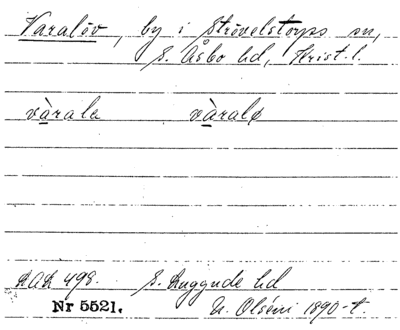 Varalöv, by i Strövelstorps sn,
S. Åsbo hd, Krist. l.
vàrala vàralø
RAÄ 498. S. Luggude hd
Nr 5521. N. Olséni 1890-t.